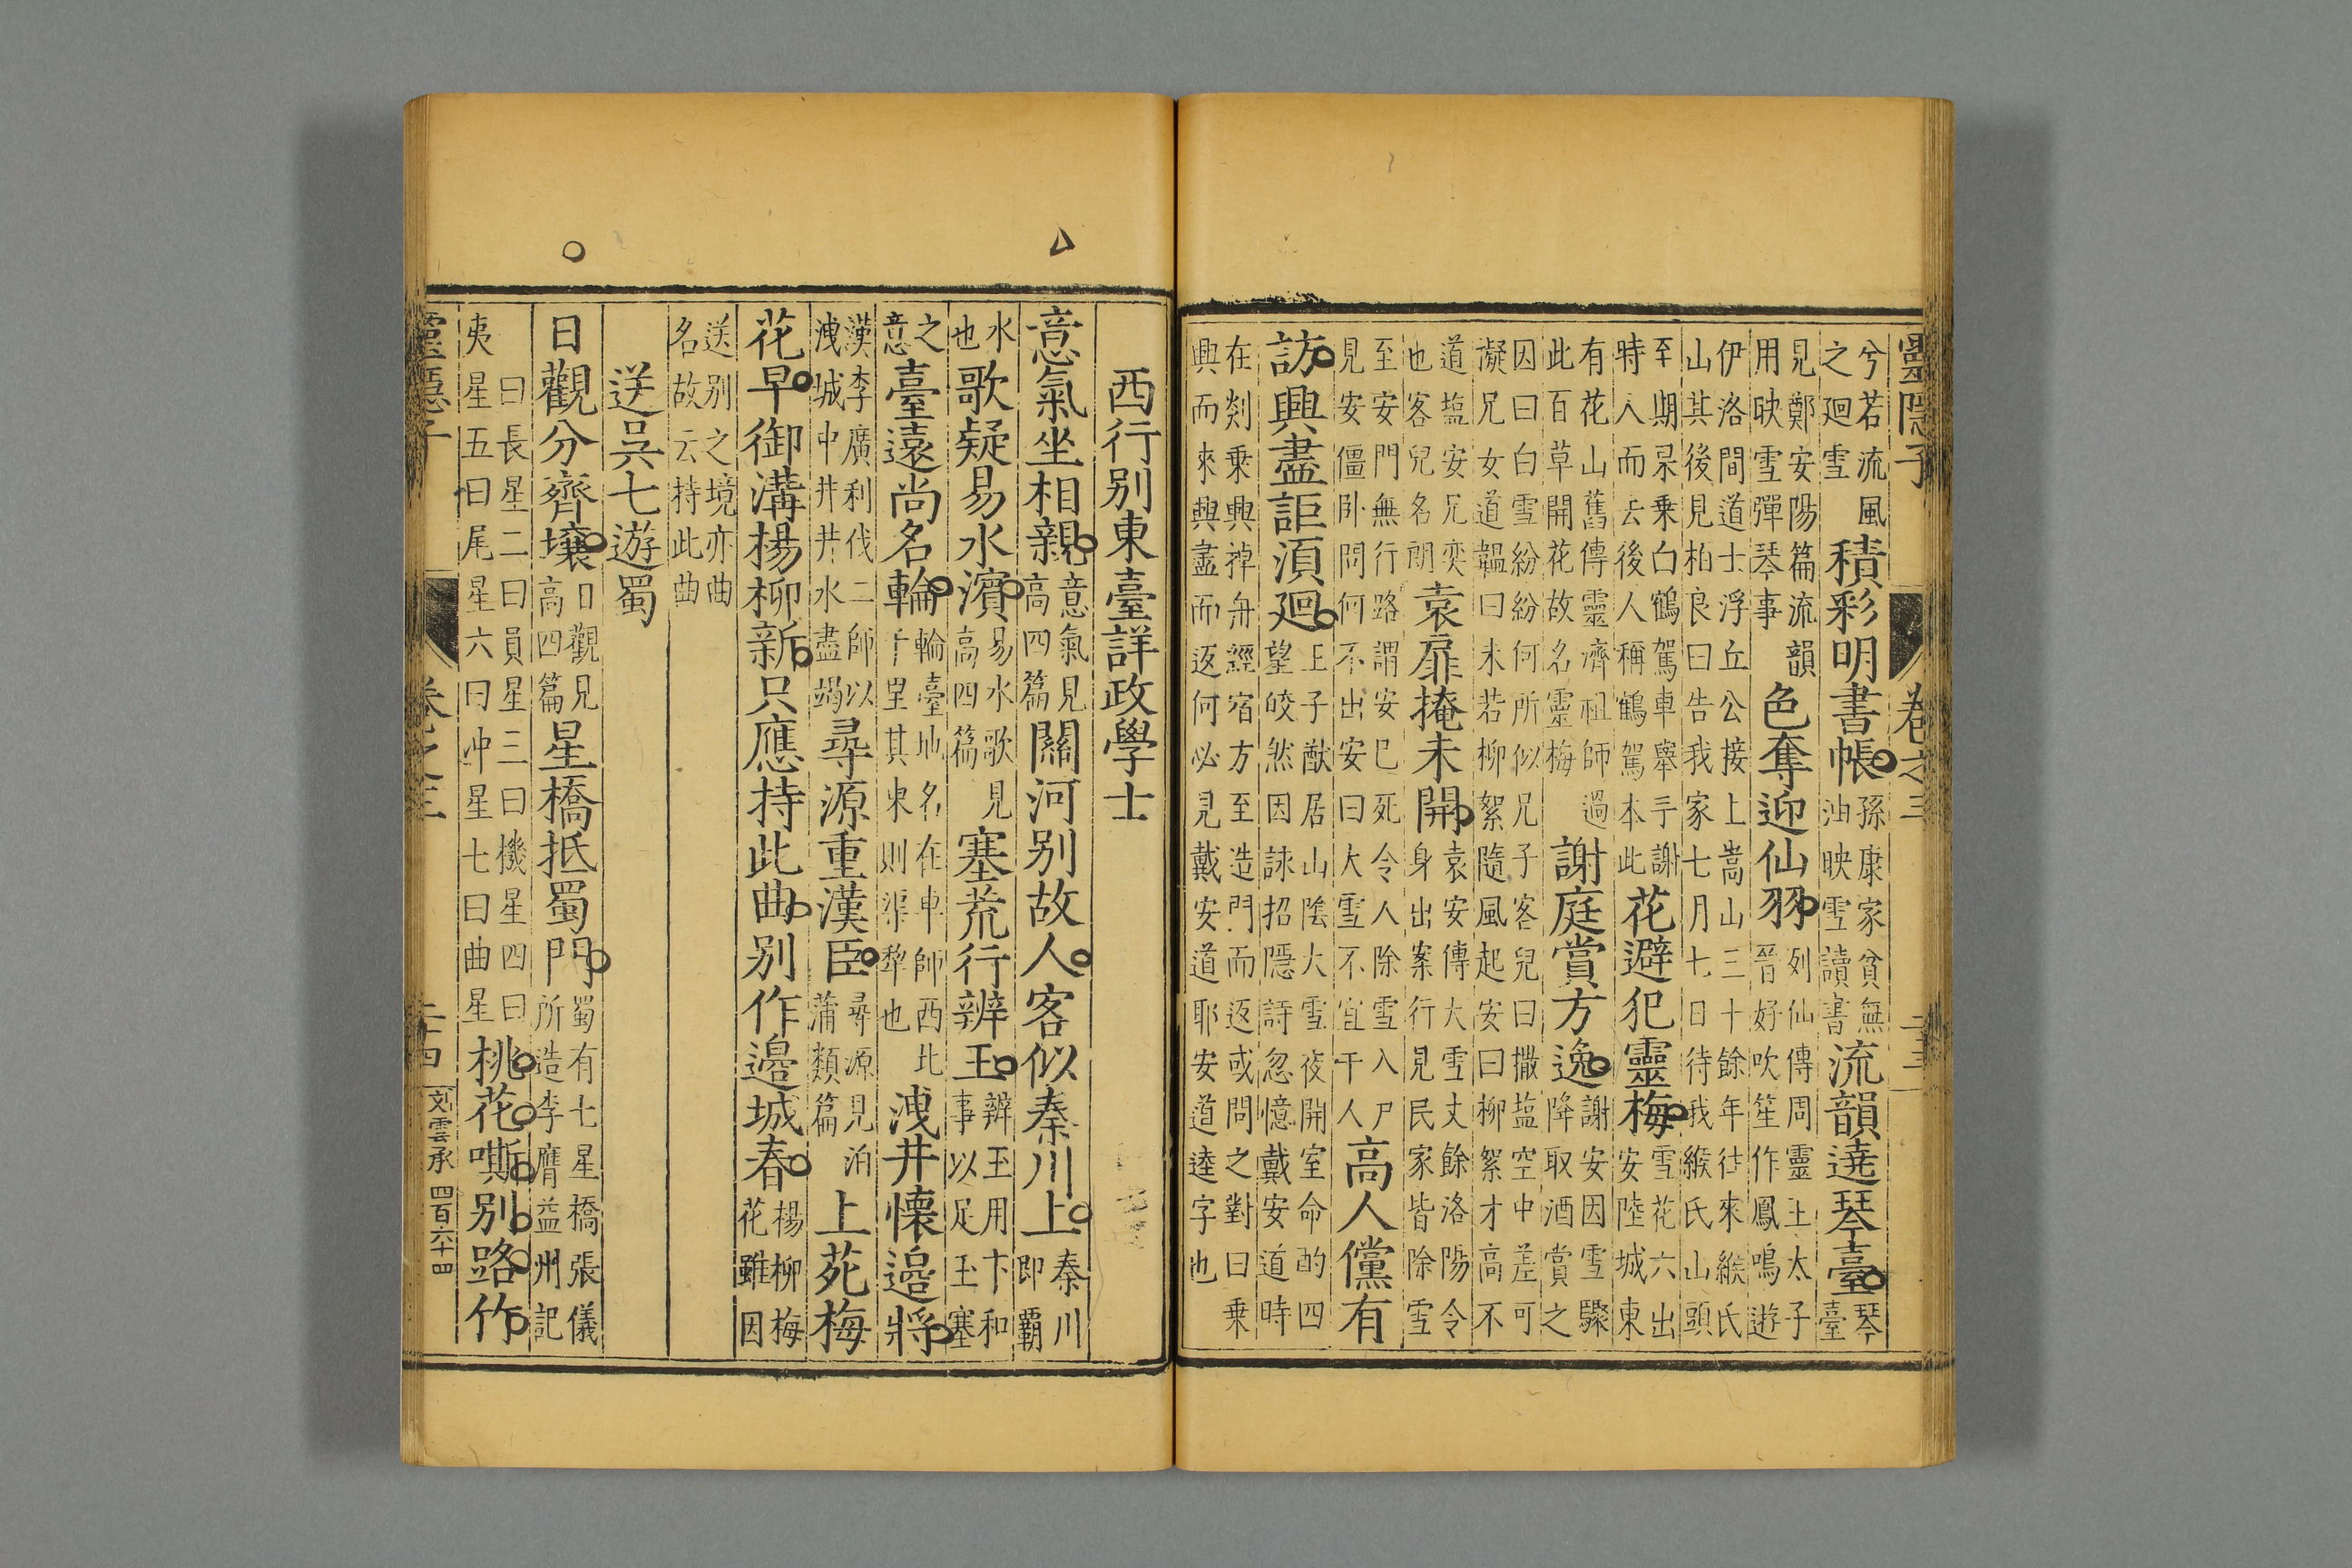 靈隱子 卷之三 二十三
兮若流風之廻雪積彩明書帳孫康家貧無油映雪讀書流韻遶琴臺琴臺
見鄭安陽篇流韻用映雪彈琴事色奪迎仙羽列仙傳周靈王太子晉好吹笙作鳳鳴遊
伊洛間道士浮丘公接上嵩山三十餘年往來緱氏山其後見柏良曰告我家七月七日待我緱氏山頭
至期果乘白鶴駕車舉手謝時人而去後人稱鶴駕本此花避犯靈梅雪花六出安陸城東
有花山舊傳靈濟祖師過此百草開花故名靈梅謝庭賞方逸謝安因雪驟降取酒賞之
因曰白雪紛紛何所似兄子客兒曰撒塩空中差可凝兄女道韞曰未若柳絮隨風起安曰柳絮才高不
道塩安兄奕也客兒名朗袁扉掩未開袁安傳大雪丈餘洛陽令身出案行見民家皆除雪
至安門無行路謂安已死令人除雪入戶見安僵卧問何不出安曰大雪不宜干人高人儻有
訪興盡詎湏廻王子猷居山陰大雪夜開室命酌四望皎然因詠招隱詩忽憶戴安道時
在剡乗興棹舟經宿方至造門而返或問之對曰乗興而來興盡而返何必見戴安道耶安道逵字也
西行别東臺詳政學士
意氣坐相親意氣見高四篇關河别故人客似秦川上秦川即覇
水也歌疑易水濱易水歌見高四篇塞荒行辨玉辨玉用卞和事以足玉塞
之意臺遠尚名輪輪臺地名在車師西北千里其東則渠犂也洩井懐邉將
漢李廣利伐二師以洩城中井井水盡竭尋源重漢臣尋源見泊蒲類篇上苑梅
花早御溝楊柳新只應持此曲别作邉城春楊柳梅花雖因
送别之境亦曲名故云持此曲
送吳七遊蜀
日觀分齊壤日觀見高四篇星橋抵蜀門蜀有七星橋張儀所造李膺益州記
曰長星二曰員星三曰機星四曰夷星五曰尾星六曰冲星七曰曲星桃花嘶别路竹
靈隱子 卷之三 二十四 刘雲承 四百六十四